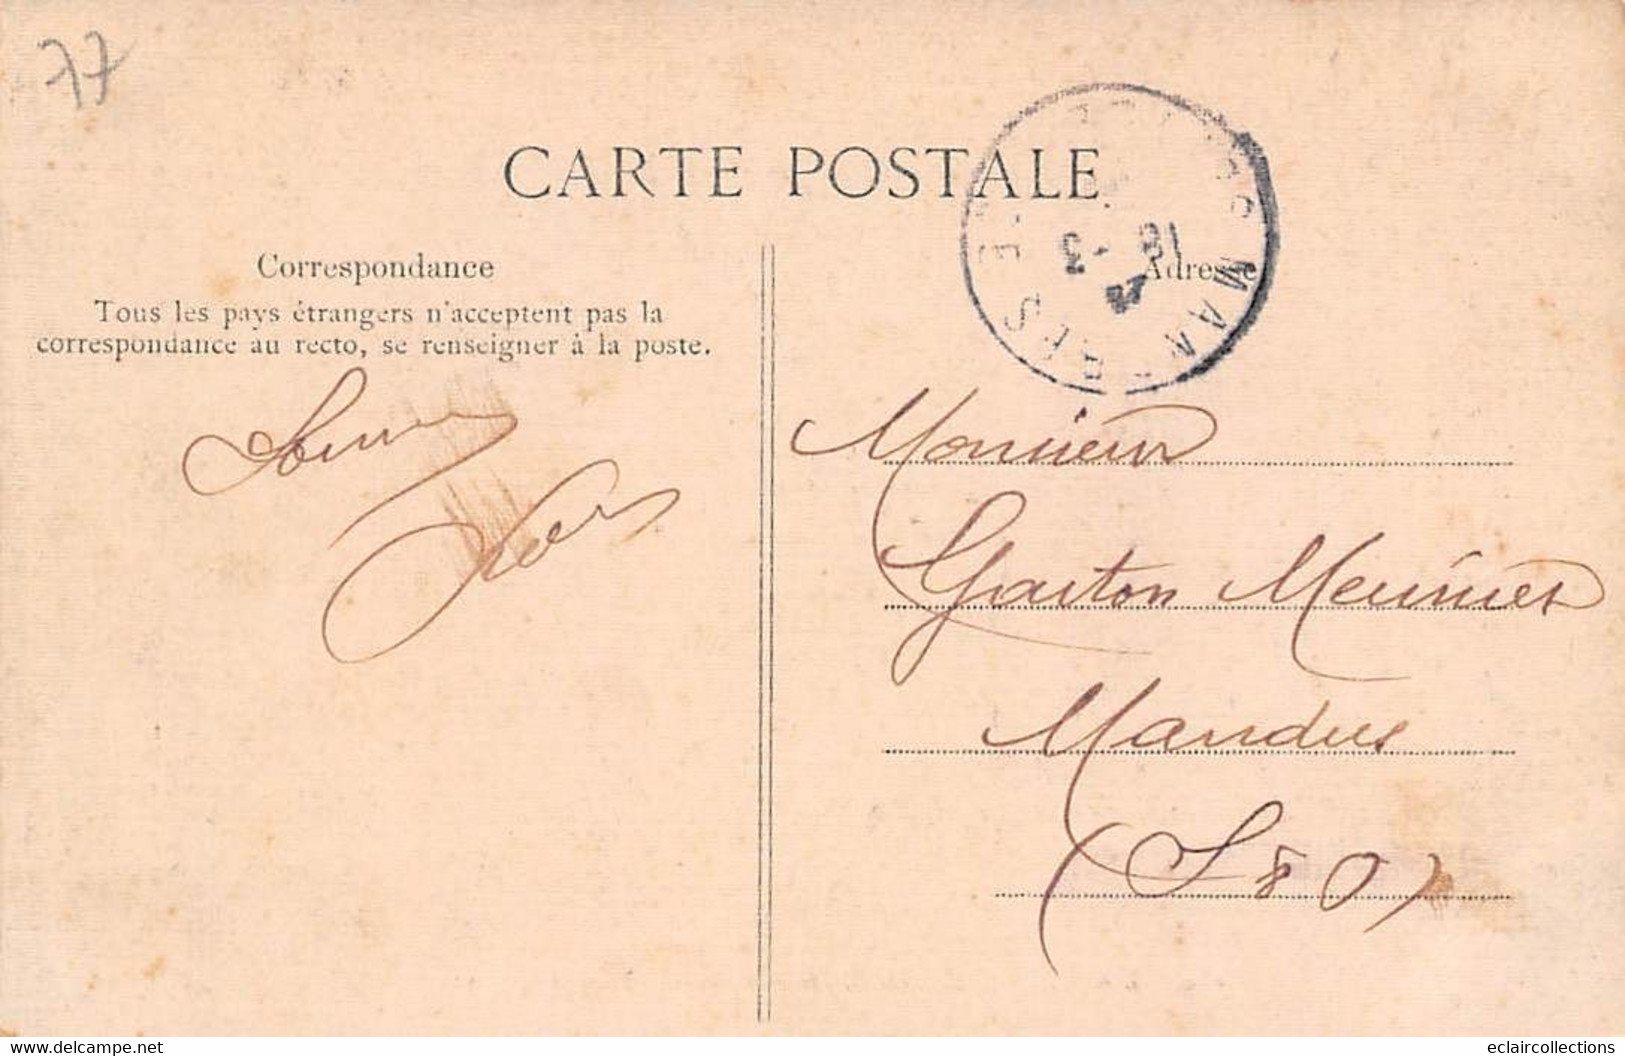 77
CARTE POSTALE
Correspondance
Tous les pays étrangers n'acceptent pas la
correspondance au recto, se renseigner à la poste.
Adresse
18 -3
Monsieur
Gaston Meunier
Mandres
(S & O)
www.delcampe.net
eclaircollections